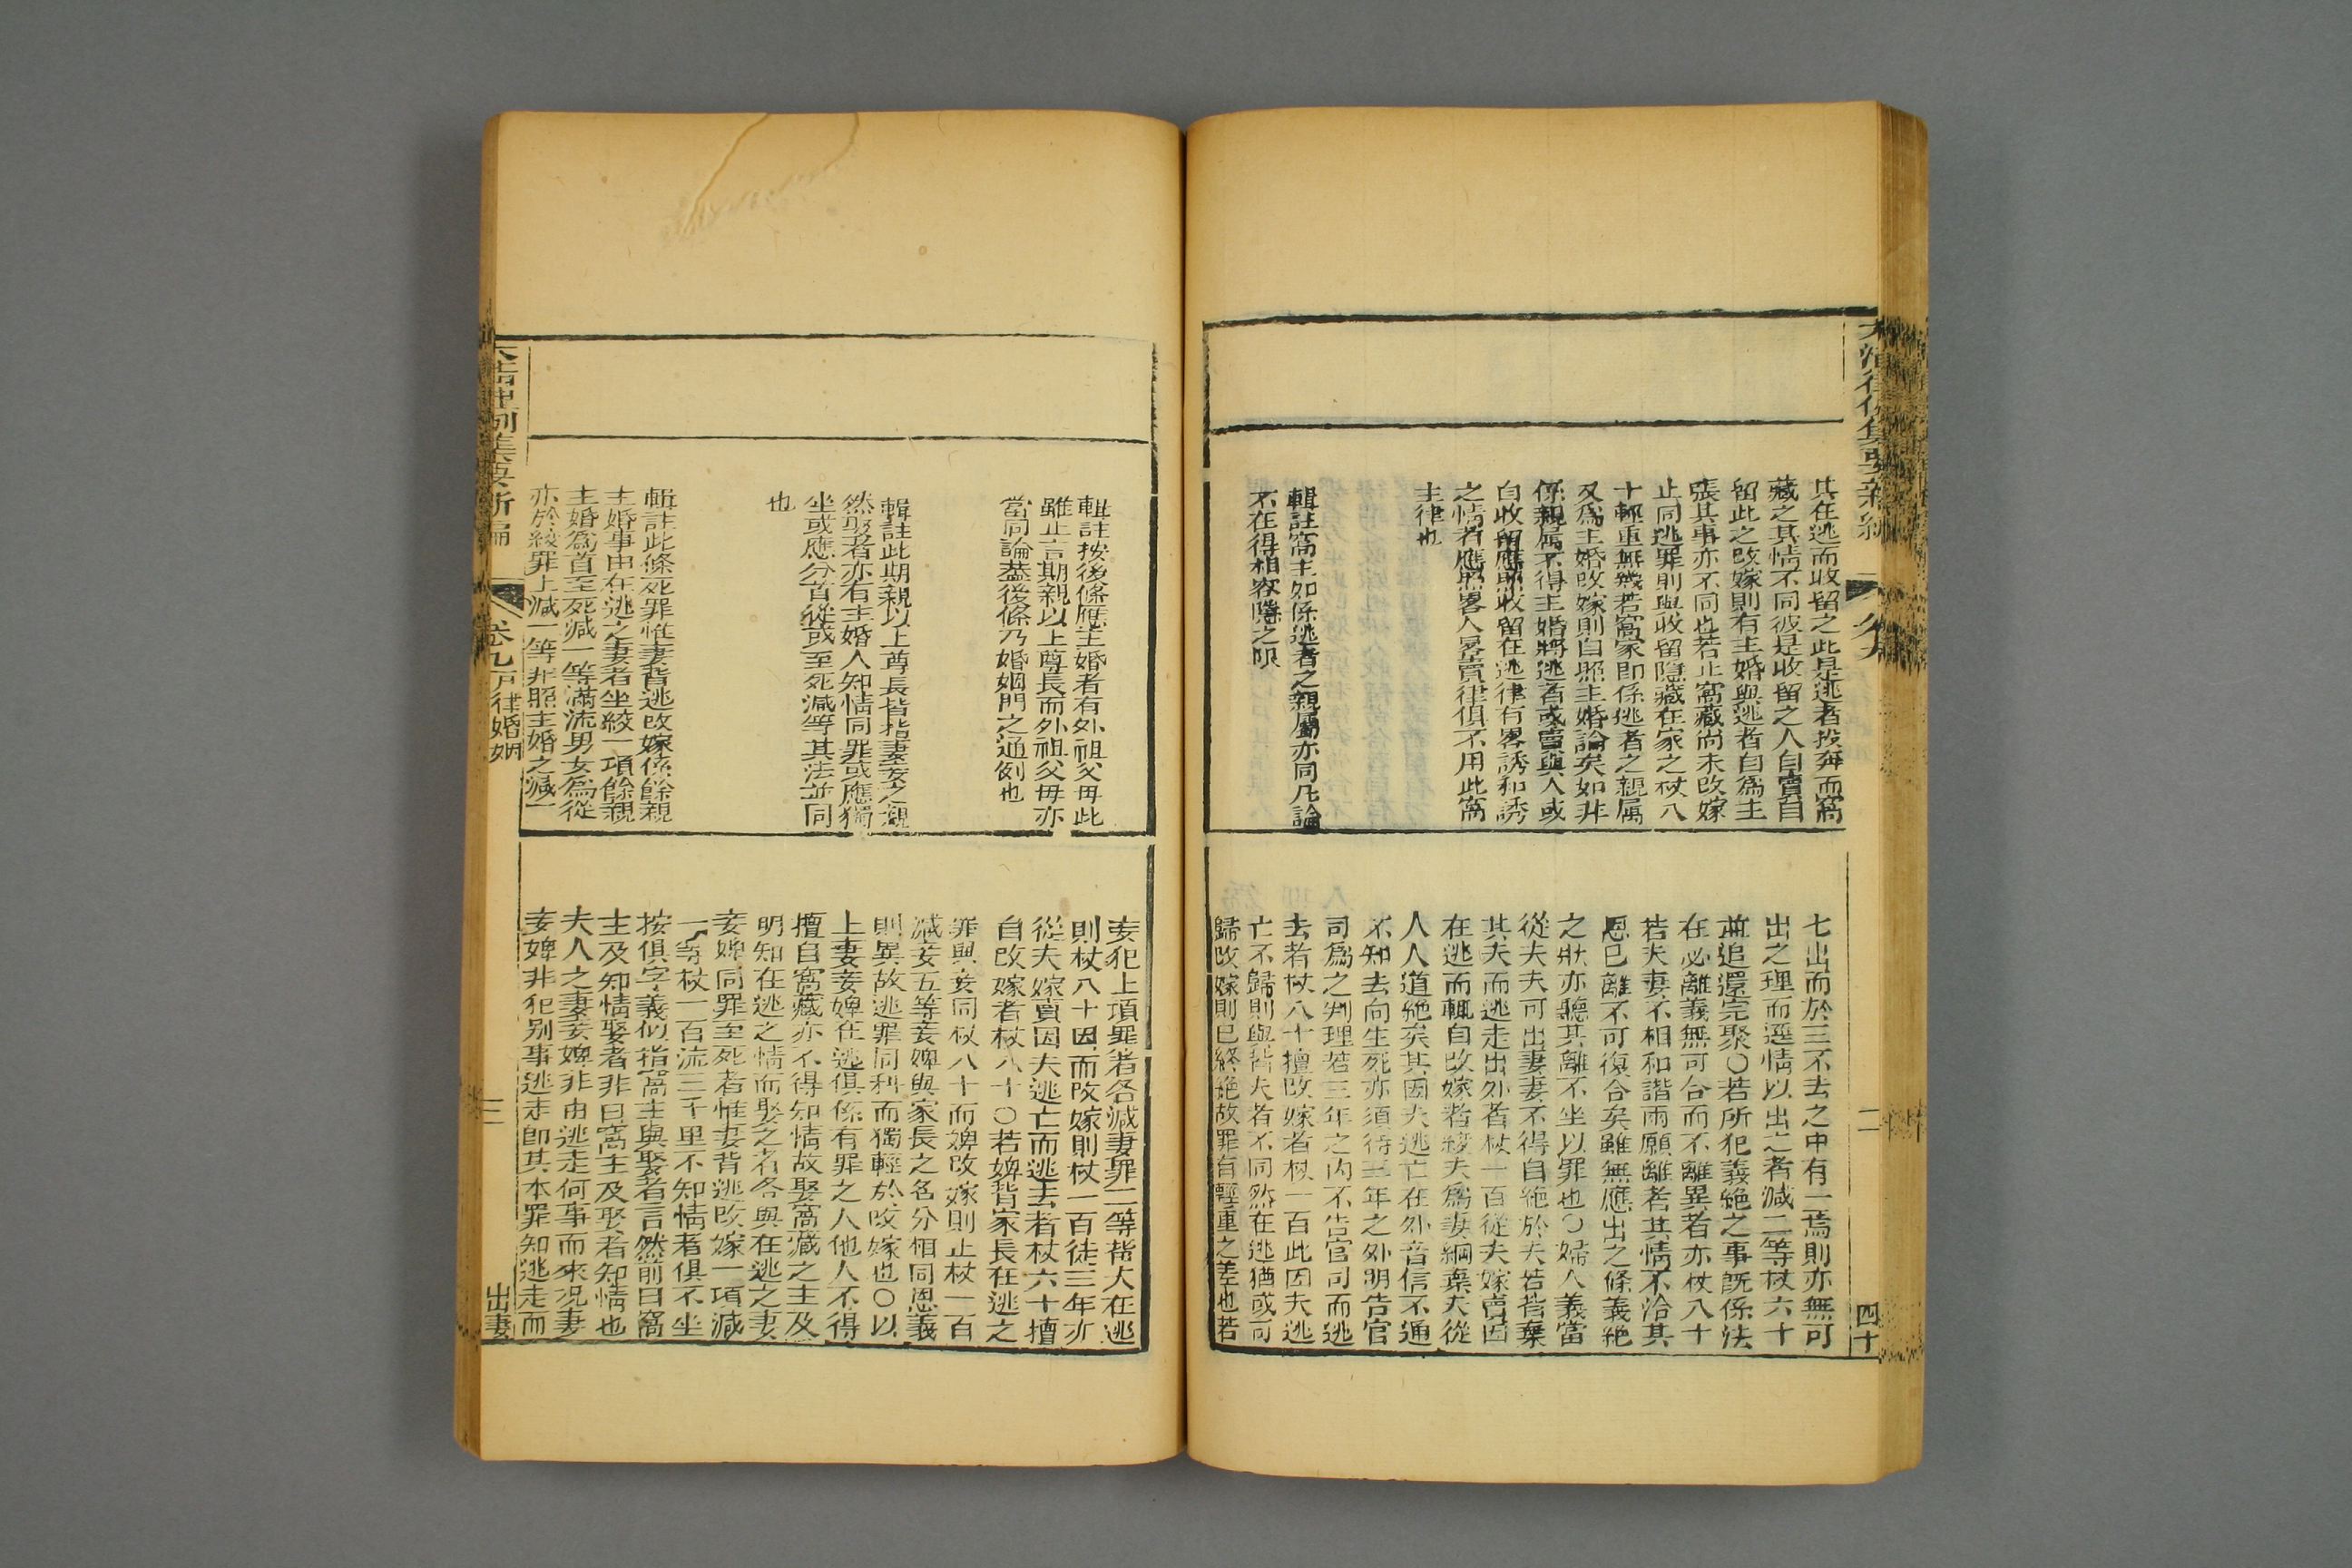 其在逃而收留之此是逃者投奔而窩
藏之其情不同彼是收留之人自賣自
留此之改嫁則有主婚與逃者自爲主
張其事亦不同也若止窩藏尚未改嫁
止同逃罪則與收留隱藏在家之杖八
十輕重無幾若窩家即係逃者之親属
又爲主婚改嫁則自照主婚論矣如非
係親属不得主婚將逃者或賣與人或
自收留應照收留在逃律有畧誘和誘
之情者應照畧人畧賣律俱不用此窩
主律也
輯註窩主如係逃者之親屬亦同凡論
不在得相容隱之限
七出而於三不去之中有一焉則亦無可
出之理而逞情以出之者減二等杖六十
並追還完聚〇若所犯義絶之事旣係法
在必離義無可合而不離異者亦杖八十
若夫妻不相和諧兩願離者其情不洽其
恩已離不可復合矣雖無應出之條義絶
之狀亦聽其離不坐以罪也〇婦人義當
從夫夫可出妻妻不得自絶於夫若背棄
其夫而逃走出外者杖一百從夫嫁賣因
在逃而輒自改嫁者絞夫爲妻綱棄夫從
人人道絶矣其因夫逃亡在外音信不通
不知去向生死亦須待三年之外明告官
司爲之判理若三年之内不告官司而逃
去者杖八十擅改嫁者杖一百此因夫逃
亡不歸則與背夫者不同然在逃猶或可
歸改嫁則已終絶故罪有輕重之差也若
四十
輯註按後條應主婚者有外祖父毋此
雖止言期親以上尊長而外祖父毋亦
當同論葢後條乃婚姻門之通例也
輯註此期親以上尊長皆指妻妾之親
然娶者亦有主婚人知情同罪或應獨
坐或應分首從或至死減等其法並同
也
輯註此條死罪惟妻背逃改嫁係餘親
主婚事由在逃之妻者坐絞一項餘親
主婚爲首至死減一等滿流男女爲從
亦於絞罪上減一等非照主婚之減一
妾犯上項罪者各減妻罪二等背夫在逃
則杖八十因而改嫁則杖一百徒三年亦
從夫嫁賣因夫逃亡而逃去者杖六十擅
自改嫁者杖八十〇若婢背家長在逃之
罪與妾同杖八十而婢改嫁則止杖一百
減妾五等妾婢與家長之名分相同恩義
則異故逃罪同科而獨輕於改嫁也〇以
上妻妾婢在逃俱係有罪之人他人不得
擅自窩藏亦不得知情故娶窩藏之主及
明知在逃之情而娶之者各與在逃之妻
妾婢同罪至死者惟妻背逃改嫁一項減
一等杖一百流三千里不知情者俱不坐
按俱字義似指窩主與娶者言然前曰窩
主及知情娶者非曰窩主及娶者知情也
夫人之妻妾婢非由逃走何事而來況妻
妾婢非犯别事逃走即其本罪知逃走而
大清律例集要新編
卷九戸律婚姻
出妻